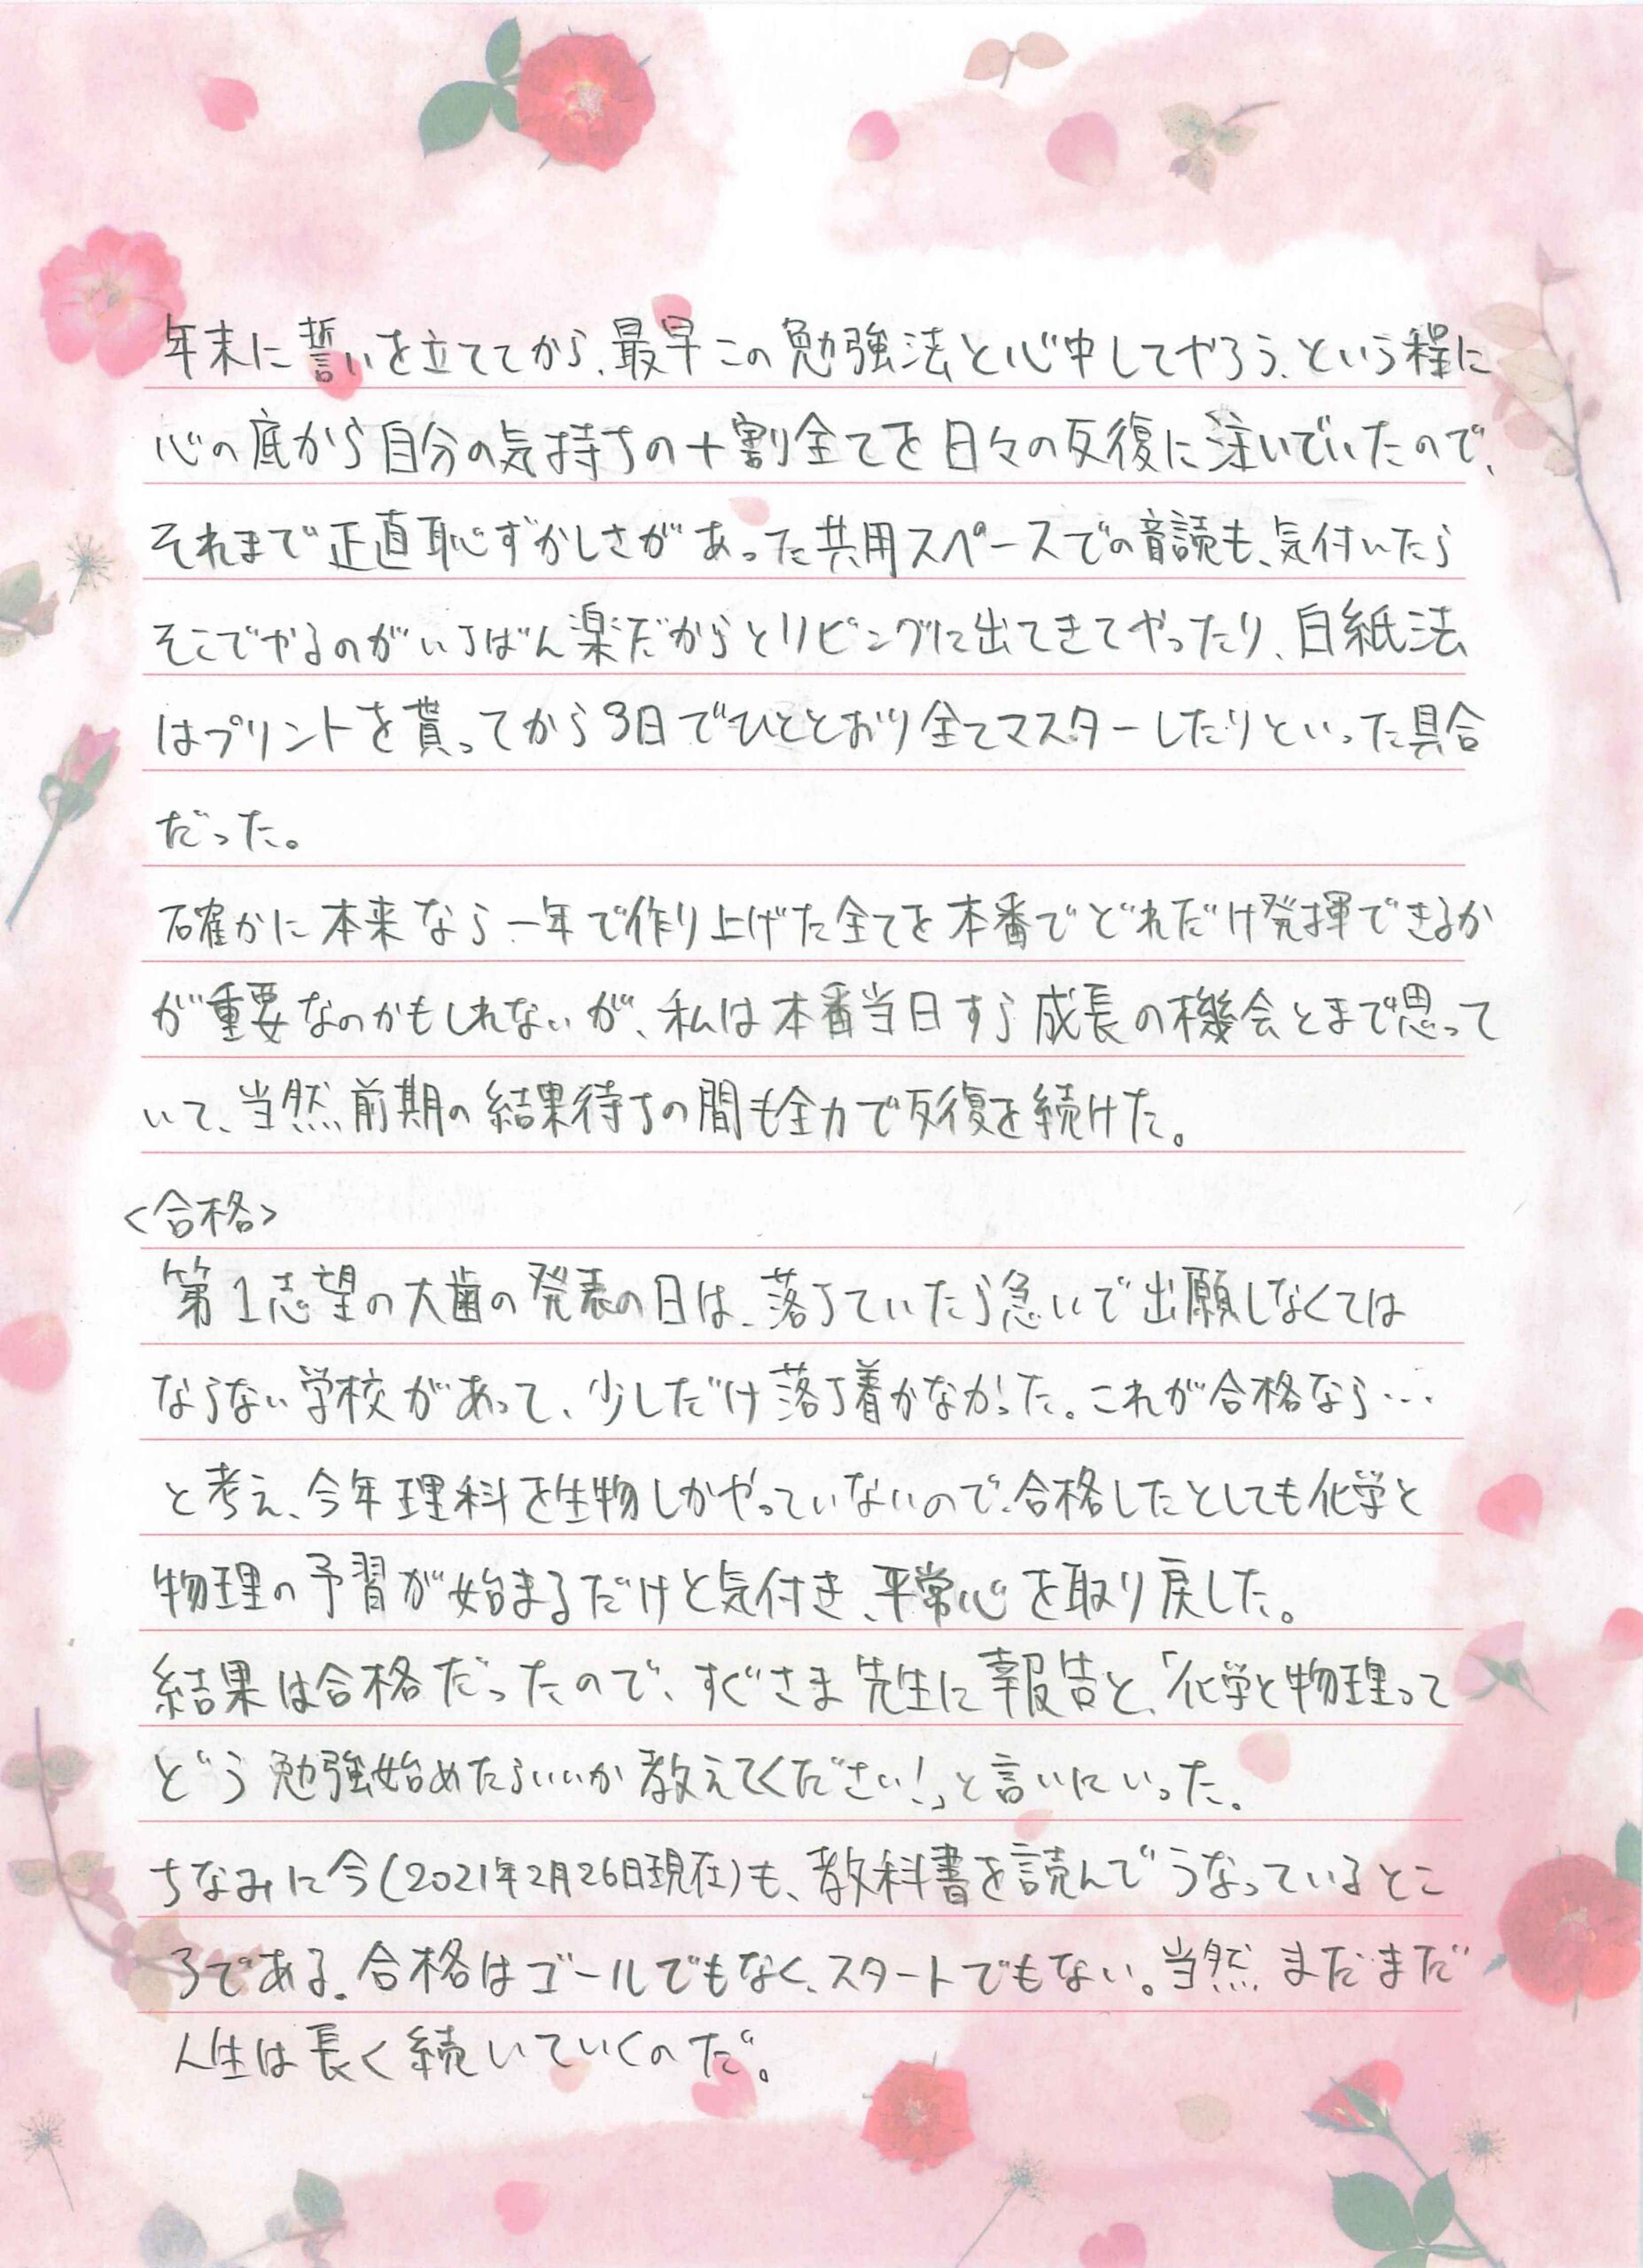 年末に誓いを立ててから、最早この勉強法と心中してやろう、という程に
心の底から自分の気持ちの十割全てを日々の反復に注いでいたので、
それまで正直恥ずかしさがあった共用スペースでの音読も、気付いたら
そこでやるのがいちばん楽だからとリビングに出てきてやったり、白紙法
はプリントを貰ってから3日でひととおり全てマスターしたりといった具合
だった。
確かに本来なら一年で作り上げた全てを本番でどれだけ発揮できるか
が重要なのかもしれないが、私は本番当日すら成長の機会とまで思って
いて、当然前期の結果待ちの間も全力で反復を続けた。
<合格>
第1志望の大歯の発表の日は、落ちていたら急いで出願しなくては
ならない学校があって、少しだけ落ち着かなかった。これが合格なら…
と考え、今年理科を生物しかやっていないので、合格したとしても化学と
物理の予習が始まるだけと気付き、平常心を取り戻した。
結果は合格だったので、すぐさま先生に報告と、「化学と物理って
どう勉強始めたらいいか教えてください!」と言いにいった。
ちなみに今(2021年2月26日現在)も、教科書を読んでうなっているとこ
ろである。合格はゴールでもなく、スタートでもない。当然まだまだ
人生は長く続いていくのだ。